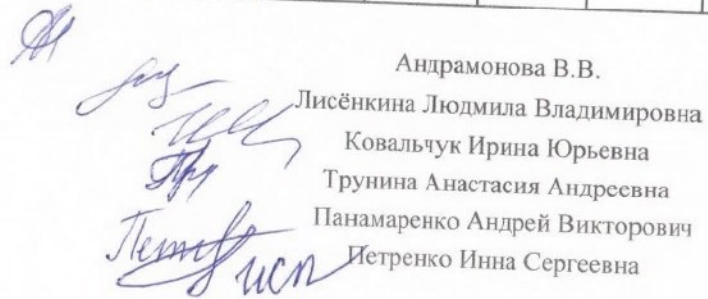 Андрамонова В.В.
Лисёнкина Людмила Владимировна
Ковальчук Ирина Юрьевна
Трунина Анастасия Андреевна
Панамаренко Андрей Викторович
Петренко Инна Сергеевна